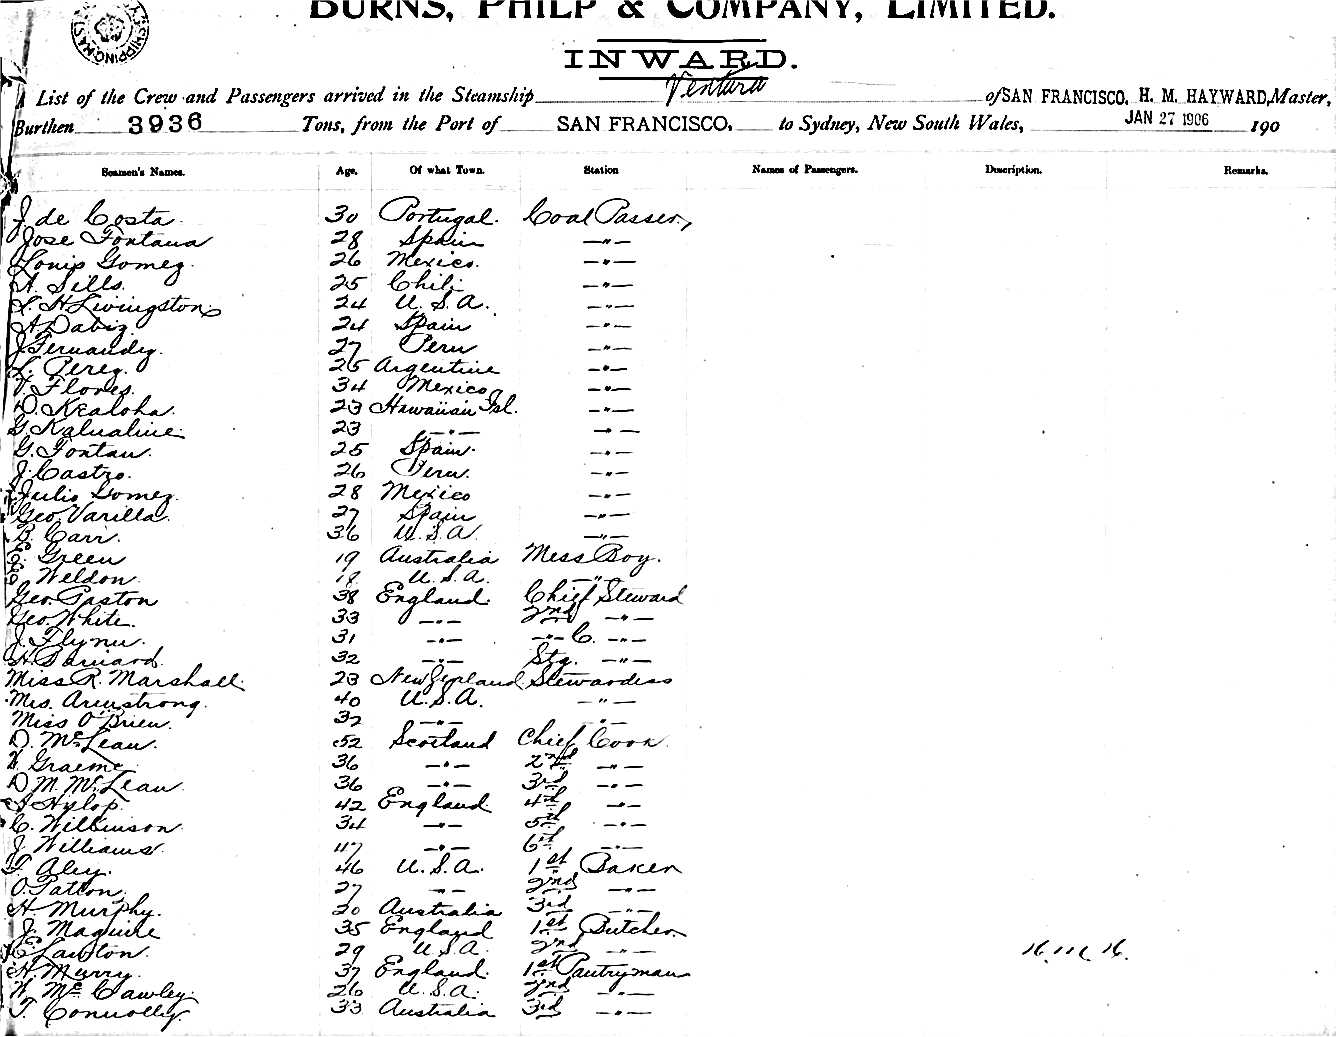 BURNS, PHILP & COMPANY, LIMITED.
INWARD.
A List of the Crew and Passengers arrived in the Steamship Ventura of SAN FRANCISCO, H. M. HAYWARD, Master,
Burthen 3936 Tons, from the Port of SAN FRANCISCO, to Sydney, New South Wales, JAN 27 1906 190
Seamen's Names. Age. Of what Town. Station Names of Passengers. Description. Remarks.
J. de Costa 30 Portugal. Coal Passer,
Jose Fontana 28 Spain —"—
Louis Gomez. 26 Mexico. —"—
A. Sills. 25 Chili —"—
L. H. Livingston 24 U. S. A. —"—
A. Dabiz. 24 Spain —"—
J. Fernandez. 27 Peru —"—
L. Perez. 25 Argentine —"—
Flores. 34 Mexico —"—
D. Kealoha. 23 Hawaiian Isl. —"—
G. 23 —"— —"—
G. Fontan. 25 Spain. —"—
J. Castro. 26 Peru. —"—
Julio Gomez. 28 Mexico —"—
Geo. Varilla. 27 Spain —"—
Carr. 36 U. S. A. —"—
E. Green 19 Australia Mess Boy.
E. Weldon. 18 U. S. A. —"—
Geo. Paston 38 England. Chief Steward
Geo. White. 33 —"— 2nd —"—
J. Flynn. 31 —"— —"— C. —"—
H. 32 —"— Stg. —"—
Miss R. Marshall. 23 New Zealand. Stewardess
Mrs. Armstrong. 40 U. S. A. —"—
Miss O'Brien. 32 —"— —"—
D. McLean. 52 Scotland Chief Cook.
Graeme 36 —"— 2nd —"—
D. M. McLean 36 —"— 3rd —"—
Hylop. 42 England 4th —"—
C. Wilkinson 34 —"— 5th —"—
J. Williams. 47 —"— 6th —"—
T. Aley. 46 U. S. A. 1st Baker
O. Patton. 27 —"— 2nd —"—
H. Murphy. 20 Australia 3rd —"—
J. Maguire 35 England 1st Butcher
E. Lawton. 29 U. S. A. 2nd —"— H. M. H.
H. Murry. 37 England. 1st Pantryman
McCawley. 26 U. S. A. 2nd —"—
T. Connolly. 33 Australia 3rd —"—